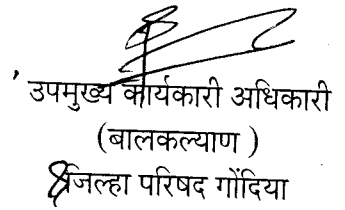 उपमुख्य कार्यकारी अधिकारी
(बालकल्याण )
जिल्हा परिषद गोंदिया